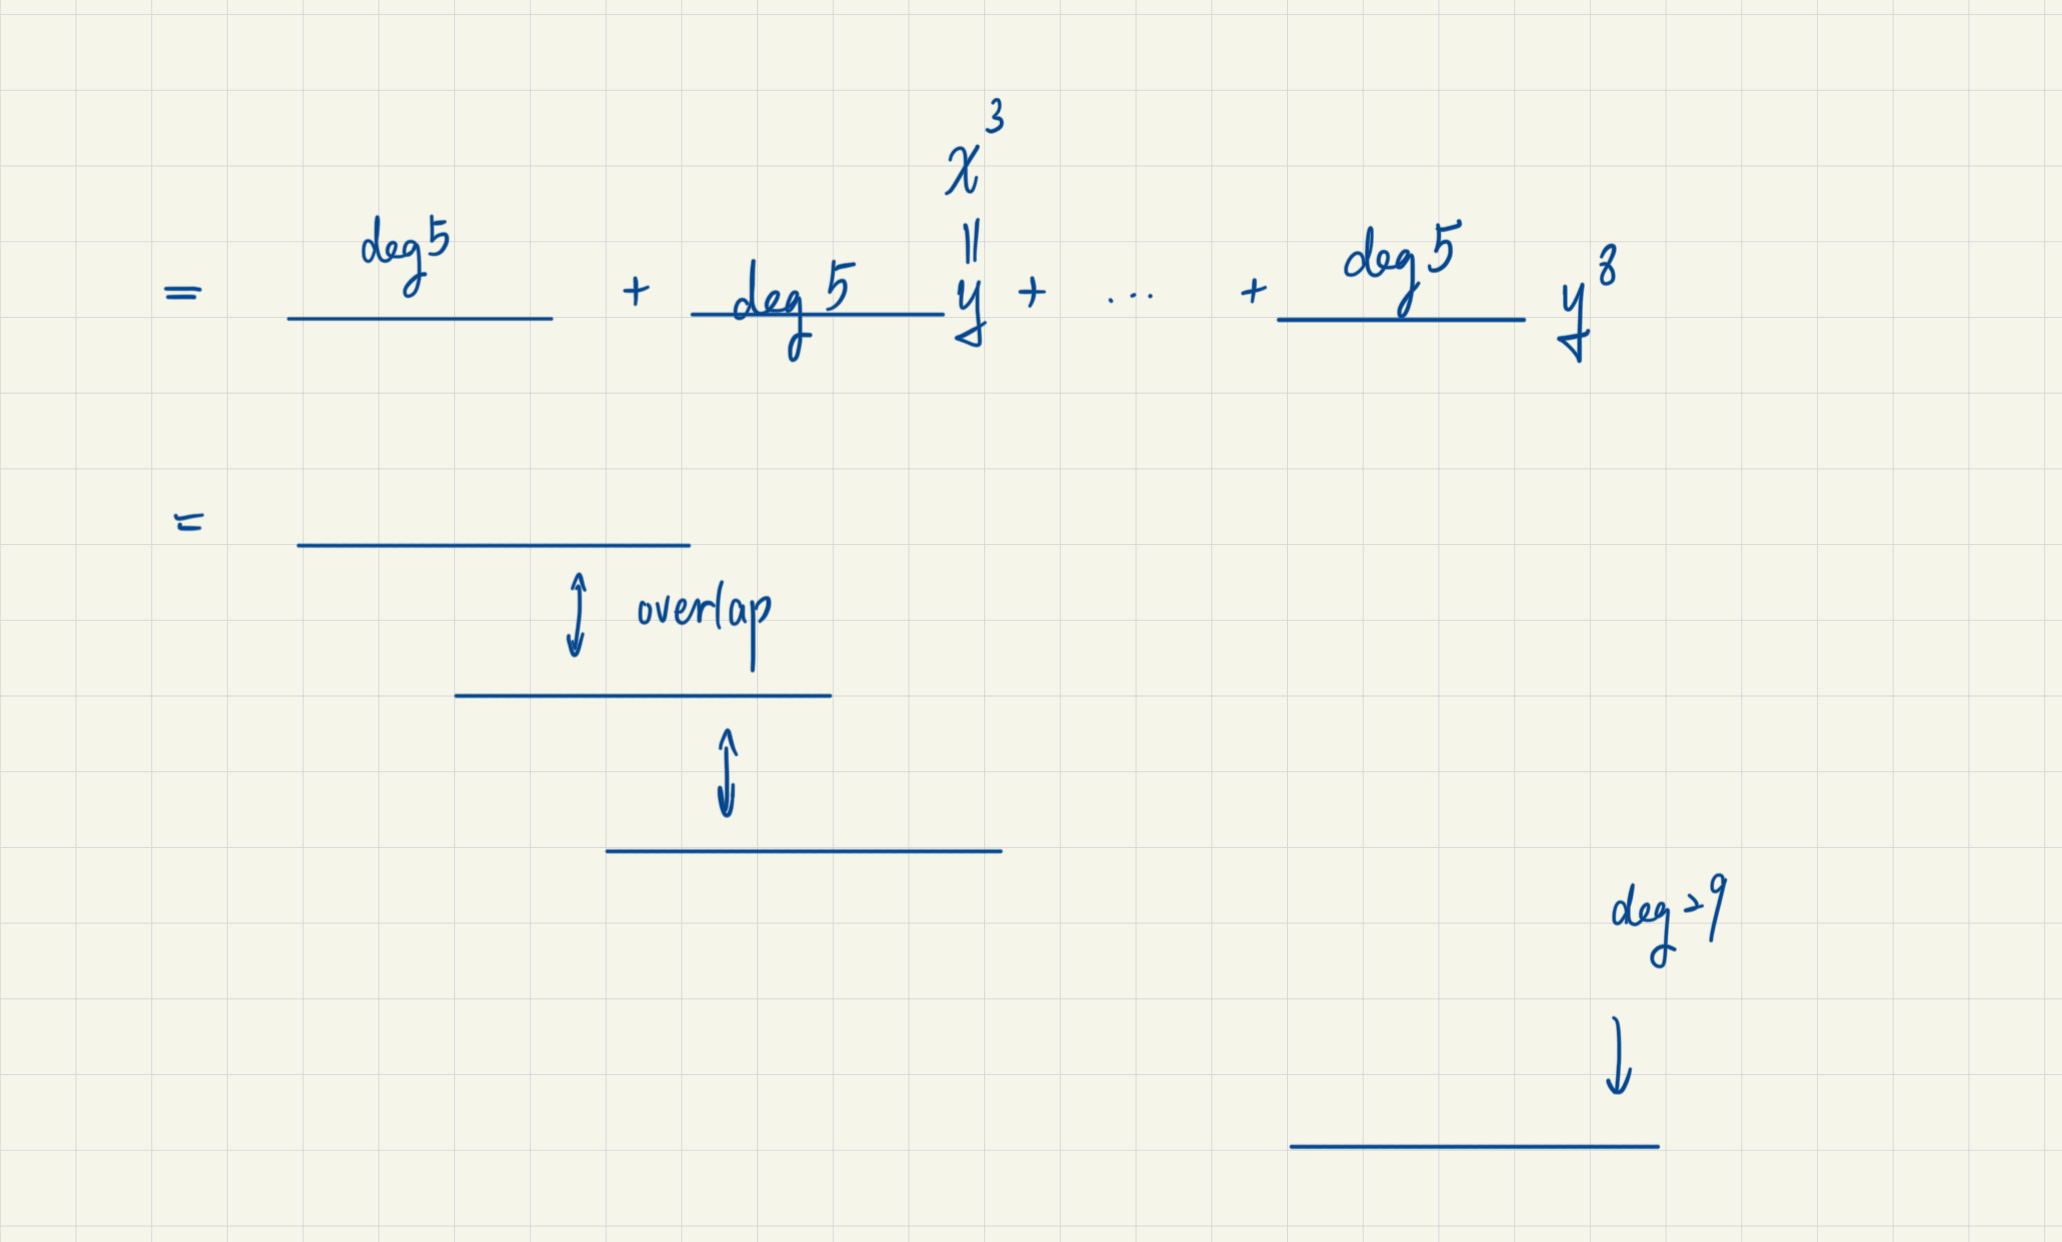 x³
||
= deg 5 + deg 5 y + ... + deg 5 y⁸
=
overlap
deg = 9